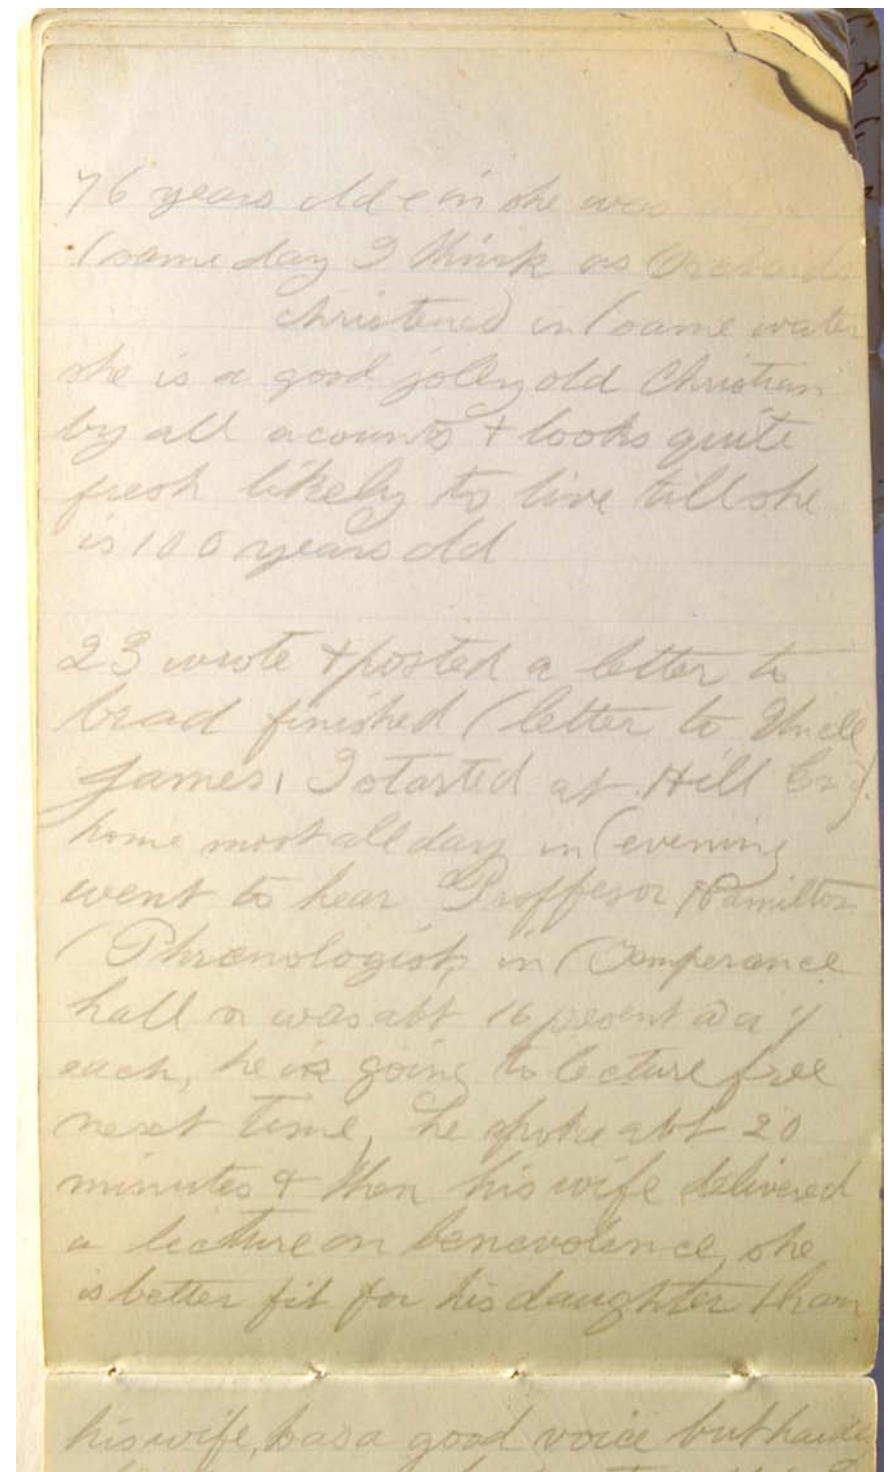 76 years old & in she was
(same day I think as
christened in (same water
she is a good joley old Christian
by all acounts & looks quite
fresh likely to live till she
is 100 years old
23 wrote & posted a letter to
brad finished (letter to Uncle
James, I started at Hill
home most all day in (evening
went to hear Proffesor Hamilton
(Phrenologist, in (Temperance
hall was abt 16 present
each, he is going to lecture free
next time, he spoke abt 20
minutes & then his wife delivered
a lecture on benevolence, she
is better fit for his daughter than
his wife, has a good voice but